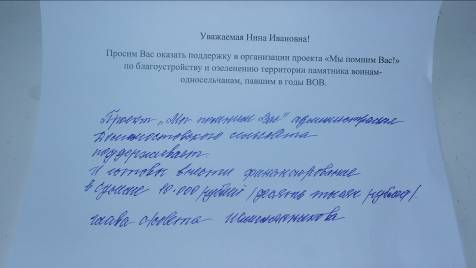 Уважаемая Нина Ивановна!
Просим Вас оказать поддержку в организации проекта «Мы помним Вас!»
по благоустройству и озеленению территории памятника воинам-
односельчанам, павшим в годы ВОВ.
Проект „Мы помним Вас" администрация
сельсовета
поддерживает.
И готовы внести финансирование
в сумме 10.000 рублей /десять тысяч рублей/
глава с/совета